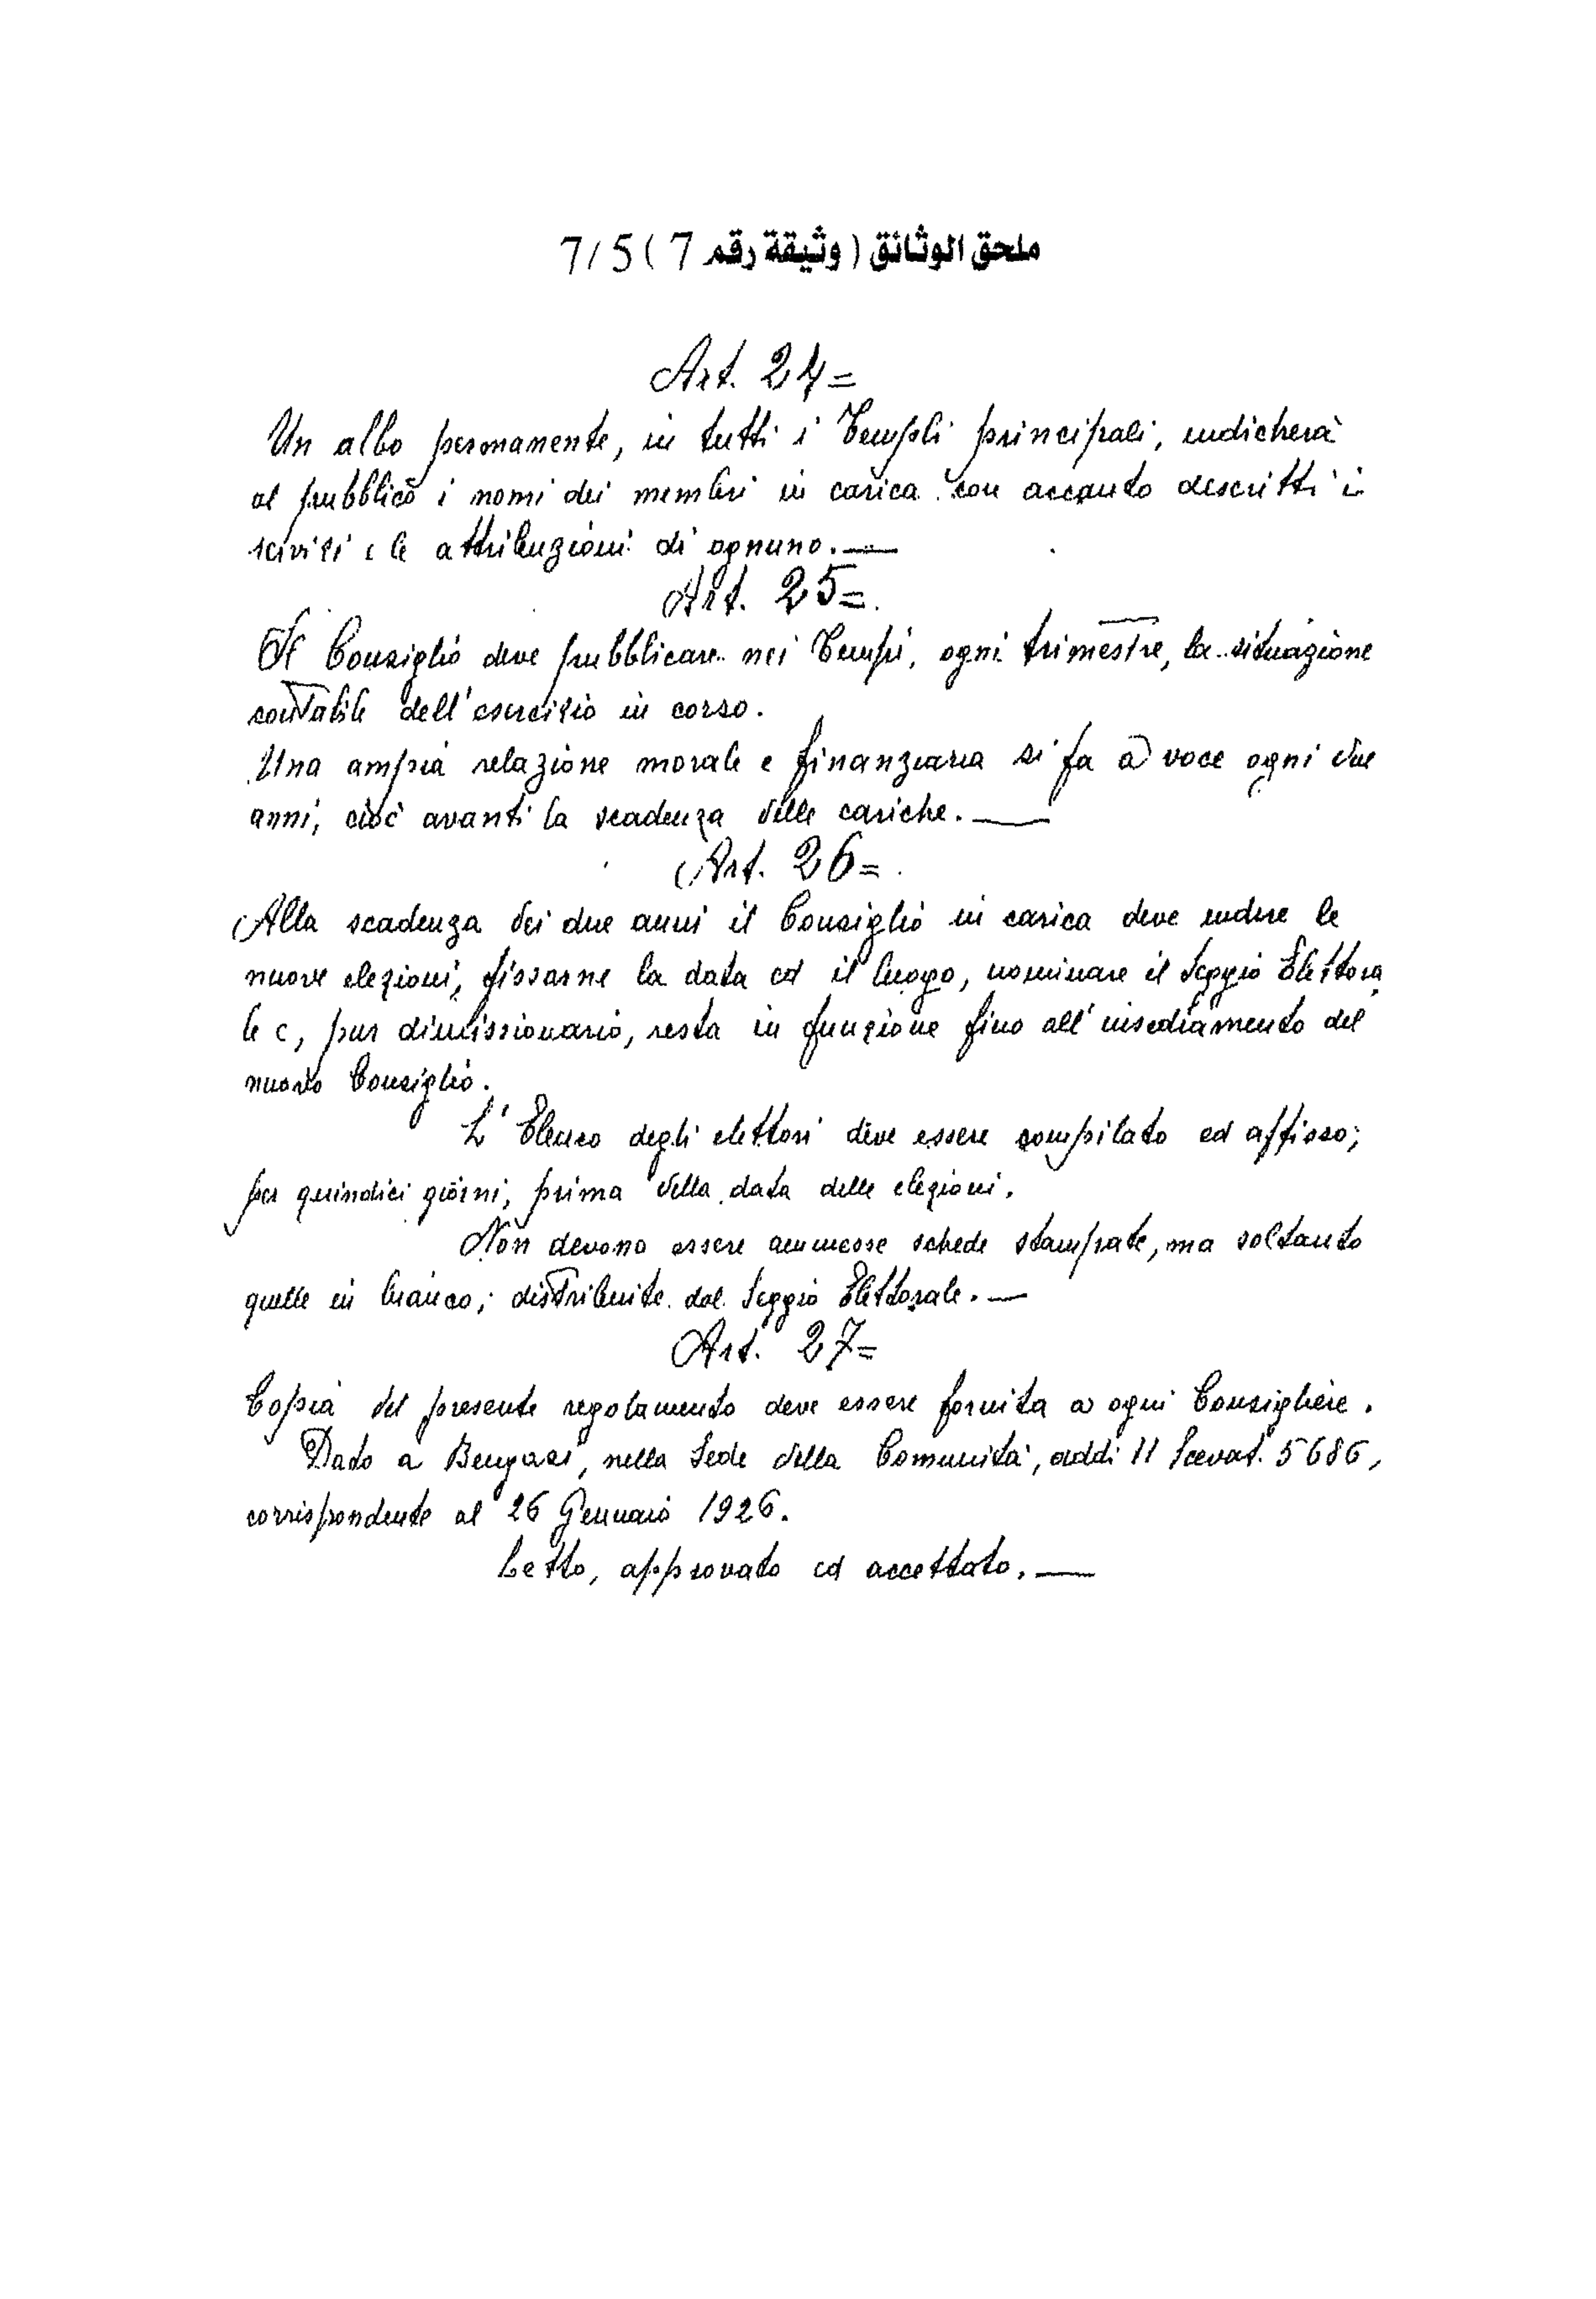 ملحق الوثائق ( وثيقة رقم 7 ) 7/5
Art. 24=
Un albo permanente, in tutti i Templi principali, indicherà
al pubblico i nomi dei membri in carica con accanto descritti i
servizi e le attribuzioni di ognuno. —
Art. 25=
Il Consiglio deve pubblicare nei Tempi, ogni trimestre, la situazione
contabile dell'esercizio in corso.
Una ampia relazione morale e finanziaria si fa a voce ogni due
anni, cioè avanti la scadenza delle cariche. —
Art. 26=
Alla scadenza dei due anni il Consiglio in carica deve indire le
nuove elezioni, fissarne la data ed il luogo, nominare il Seggio Elettora
le e, pur dimissionario, resta in funzione fino all'insediamento del
nuovo Consiglio.
L'Elenco degli elettori deve essere compilato ed affisso,
per quindici giorni, prima della data delle elezioni.
Non devono essere ammesse schede stampate, ma soltanto
quelle in bianco, distribuite dal Seggio Elettorale. —
Art. 27=
Copia del presente regolamento deve essere fornita a ogni Consigliere.
Dato a Bengasi, nella Sede della Comunità, addì 11 Scevat. 5686,
corrispondente al 26 Gennaio 1926.
Letto, approvato ed accettato. —